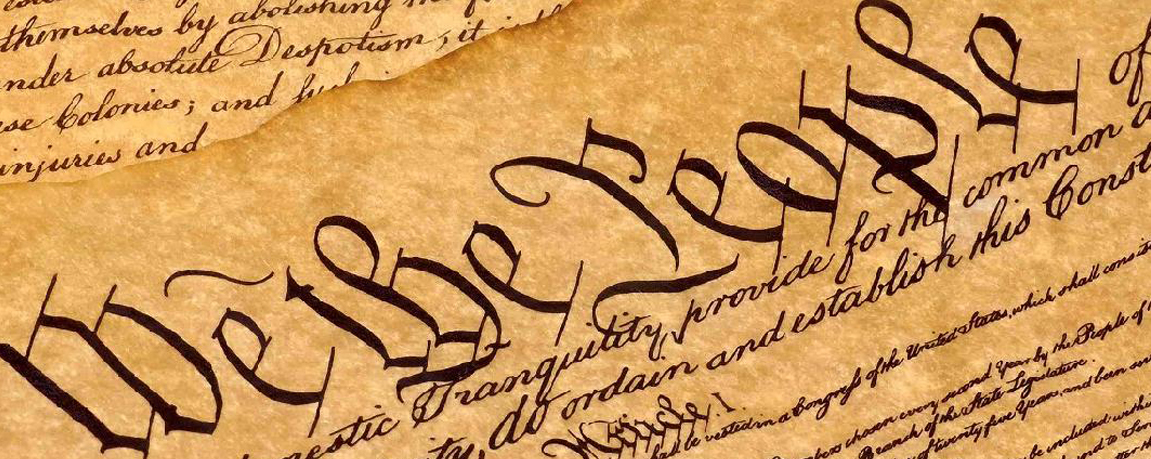 themselves by abolishing the
under absolute Despotism, it is the
Colonies; and
injuries and
We the People of
Tranquility, provide for the common
do ordain and establish this
Article I
vested in a Congress of the United States, which shall consist
chosen every second Year by the People of
Branch of the State Legislature.
of twenty five Years, and been
be included within
and to